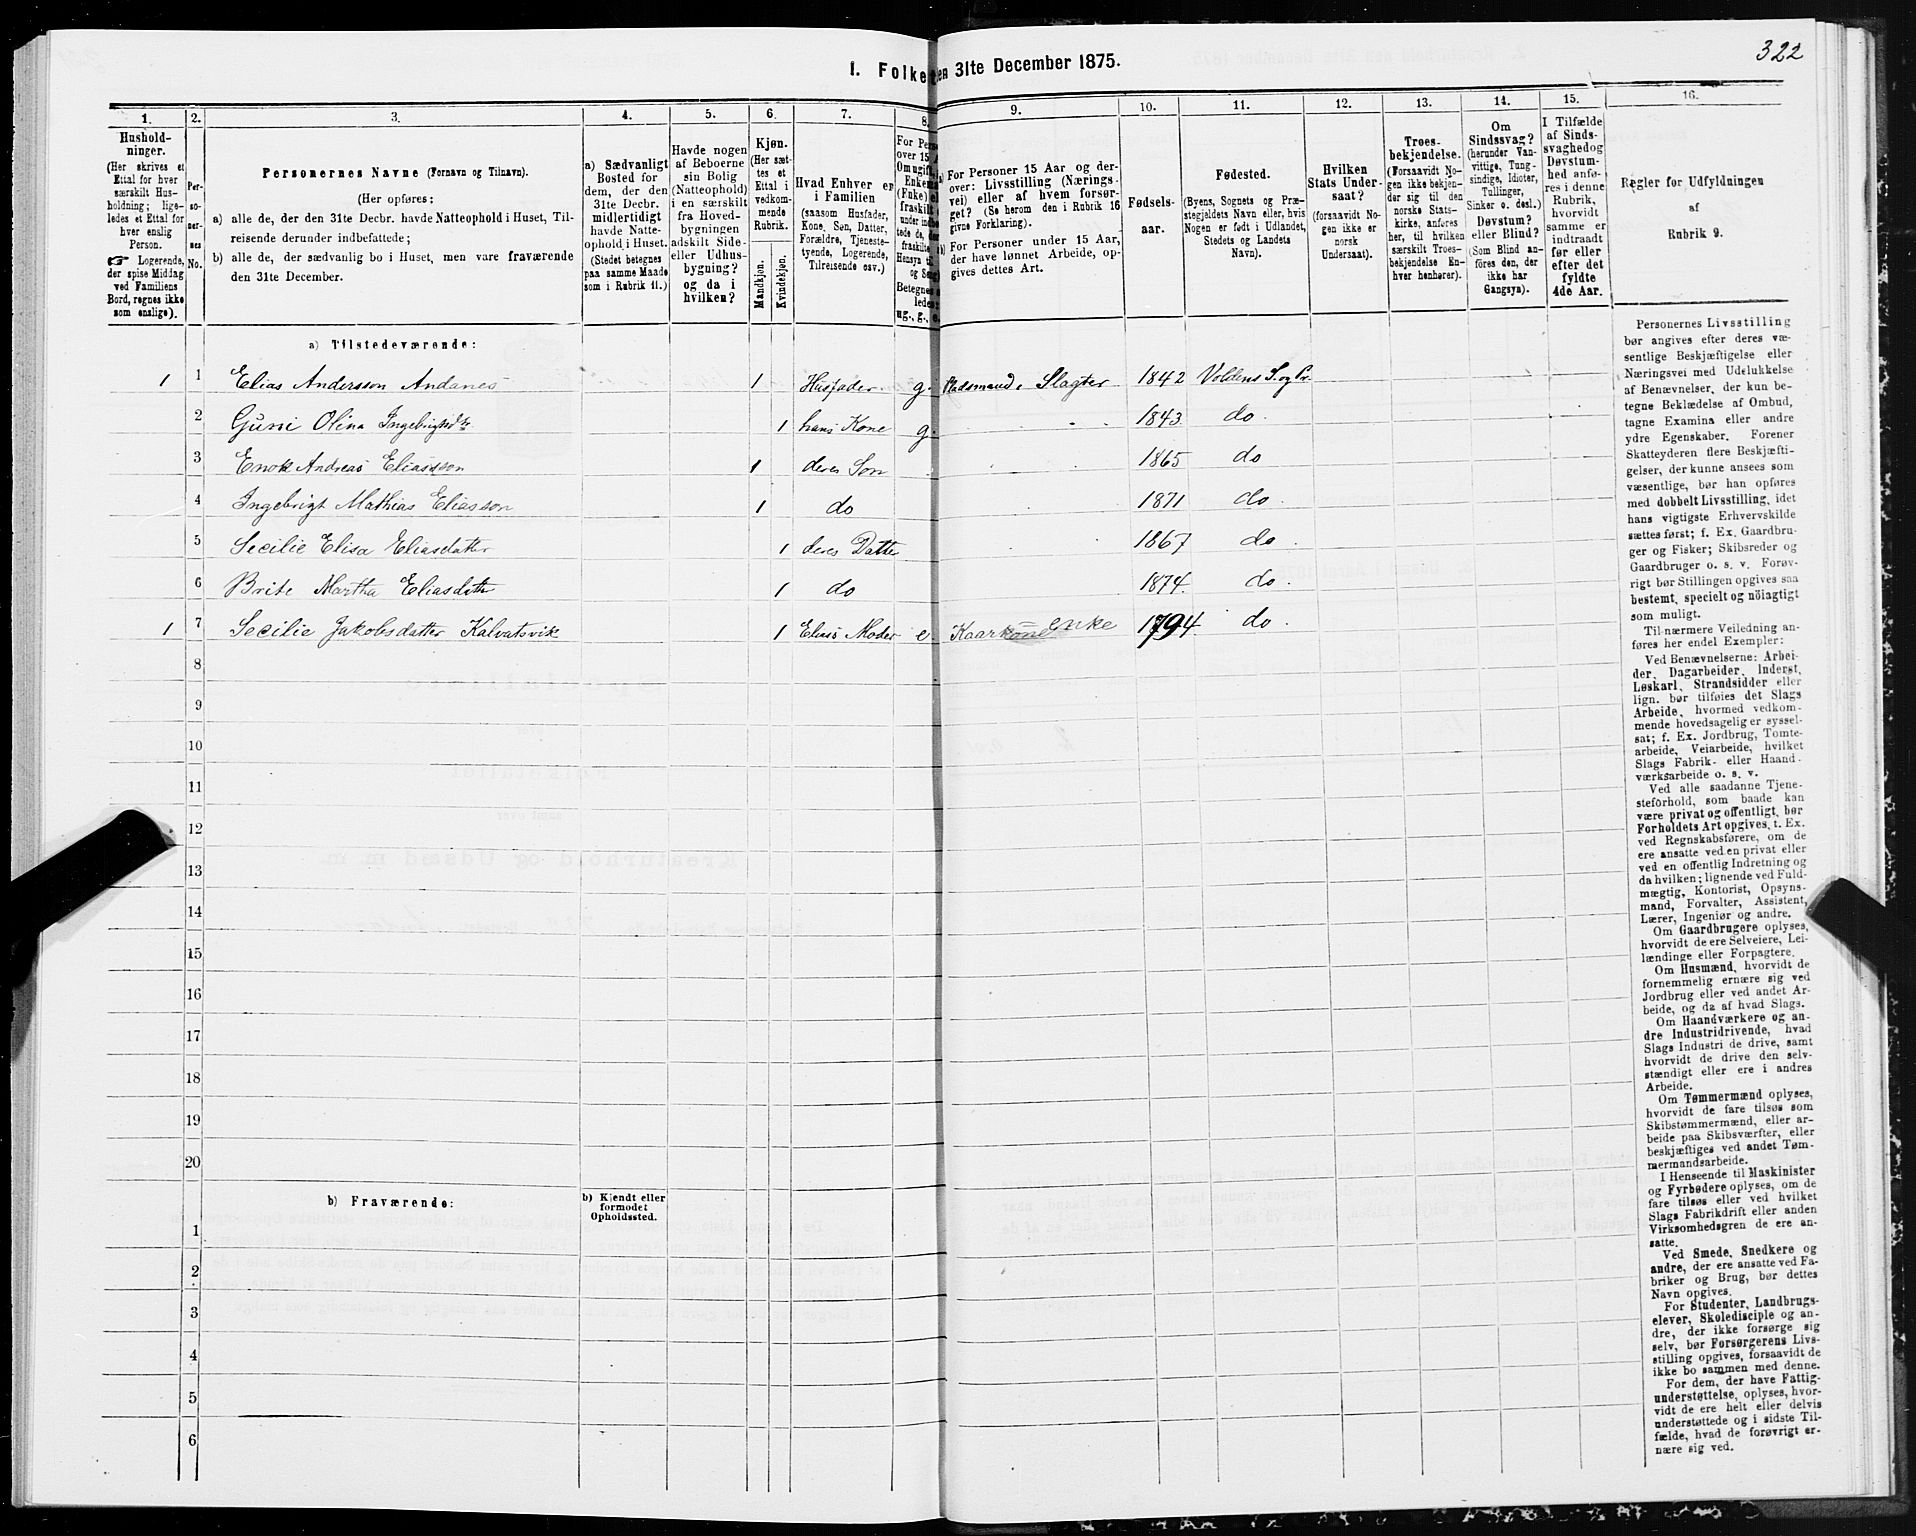 322
1. Folke en 31te December 1875.
1. 2. 3. 4. 5. 6. 7. 8. 9. 10. 11. 12. 13. 14. 15. 16.
Hushold-
ninger.
(Her skrives et
Ettal for hver
særskilt Hus-
holdning; lige-
ledes et Ettal for
hver enslig
Person.
☞ Logerende,
der spise Middag
ved Familiens
Bord, regnes ikke
som enslige).
Per-
so-
ner-
nes
No.
Personernes Navne (Fornavn og Tilnavn).
(Her opføres:
a) alle de, der den 31te Decbr. havde Natteophold i Huset, Til-
reisende derunder indbefattede;
b) alle de, der sædvanlig bo i Huset, men vare fraværende
den 31te December.
a) Sædvanligt
Bosted for
dem, der den
31te Decbr.
midlertidigt
havde Natte-
ophold i Huset.
(Stedet betegnes
paa samme Maade
som i Rubrik 11.)
Havde nogen
af Beboerne
sin Bolig
(Natteophold)
i en særskilt
fra Hoved-
bygningen
adskilt Side-
eller Udhus-
bygning?
og da i
hvilken?
Kjøn.
(Her sæt-
tes et
Ettal i
vedkom-
mende
Rubrik.
Mandkjøn.
Kvindekjøn.
Hvad Enhver er
i Familien
(saasom Husfader,
Kone, Søn, Datter,
Forældre, Tjeneste-
tyende, Logerende,
Tilreisende osv.)
For Pers
over 15
Omgift,
Enkem
(Enke) el
fraskilt
under indbe
tede de, der
fraskilte
Hensyn til
og Seng
Betegnes
ledes:
ug., g., e.
a) For Personer 15 Aar og der-
over: Livsstilling (Nærings-
vei) eller af hvem forsør-
get? (Se herom den i Rubrik 16
givne Forklaring).
b) For Personer under 15 Aar,
der have lønnet Arbeide, op-
gives dettes Art.
Fødsels-
aar.
Fødested.
(Byens, Sognets og Præ-
stegjeldets Navn eller, hvis
Nogen er født i Udlandet,
Stedets og Landets
Navn).
Hvilken
Stats Under-
saat?
(forsaavidt No-
gen ikke er
norsk
Undersaat).
Troes-
bekjendelse.
(Forsaavidt No-
gen ikke bekjen-
der sig til den
norske Stats-
kirke, anføres
her, til hvilken
særskilt Troes-
bekjendelse En-
hver henhører).
Om
Sindssvag?
(herunder Van-
vittige, Tung-
sindige, Idioter,
Tullinger,
Sinker o. desl.)
Døvstum?
eller Blind?
(Som Blind an-
føres den, der
ikke har
Gangsyn).
I Tilfælde
af Sinds-
svaghed og
Døvstum-
hed anfø-
res i denne
Rubrik,
hvorvidt
samme er
indtraadt
før eller
efter det
fyldte
4de Aar.
Regler for Udfyldningen
af
Rubrik 9.
a) Tilstedeværende:
1 1 Elias Andersson Andanes 1 Husfader g. Pladsmand, Slagter 1842 Voldens S. og Pr
2 Guni Olina Ingebrigtsdtr 1 hans Kone g. 1843. do.
3 Enok Andreas Eliasson 1 deres Søn 1865 do
4 Ingebrigt Mathias Eliasson 1 do 1871 do.
5 Secilie Elisa Eliasdatter 1 deres Datter 1867 do.
6 Brite Martha Eliasdatter 1 do 1874. do.
1 7 Secilie Jakobsdatter Kalvatsvik 1 Elias's Moder e. Kaarkone enke 1794 do.
8
9
10
11
12
13
14
15
16
17
18
19
20
b) Fraværende:
b) Kjendt eller
formodet
Opholdssted.
1
2
3
4
5
6
Personernes Livsstilling
bør angives efter deres væ-
sentlige Beskjæftigelse eller
Næringsvei med Udelukkelse
af Benævnelser, der kun be-
tegne Beklædelse af Ombud,
tagne Examina eller andre
ydre Egenskaber. Forener
Skatteyderen flere Beskjæfti-
gelser, der kunne ansees som
væsentlige, bør han opføres
med dobbelt Livsstilling, idet
hans vigtigste Erhvervskilde
sættes først; f. Ex. Gaardbru-
ger og Fisker; Skibsreder og
Gaardbruger o. s. v. Forøv-
rigt bør Stillingen opgives saa
bestemt, specielt og nøiagtigt
som muligt.
Til nærmere Veiledning an-
føres her endel Exempler:
Ved Benævnelserne: Arbei-
der, Dagarbeider, Inderst,
Løskarl, Strandsidder eller
lign. bør tilføies det Slags
Arbeide, hvormed vedkom-
mende hovedsagelig er syssel-
sat; f. Ex. Jordbrug, Tomte-
arbeide, Veiarbeide, hvilket
Slags Fabrik- eller Haand-
værksarbeide o. s. v.
Ved alle saadanne Tjene-
steforhold, som baade kan
være privat og offentligt, bør
Forholdets Art opgives, t. Ex.
ved Regnskabsførere, om de
ere ansatte ved en privat eller
ved en offentlig Indretning og
da hvilken; lignende ved Fuld-
mægtig, Kontorist, Opsyns-
mand, Forvalter, Assistent,
Lærer, Ingeniør og andre.
Om Gaardbrugere oplyses,
hvorvidt de ere Selveiere, Lei-
lændinge eller Forpagtere.
Om Husmænd, hvorvidt de
fornemmelig ernære sig ved
Jordbrug eller ved andet Ar-
beide, og da af hvad Slags.
Om Haandværkere og an-
dre Industridrivende, hvad
Slags Industri de drive, samt
hvorvidt de drive den selv-
stændigt eller ere i andres
Arbeide.
Om Tømmermænd oplyses,
hvorvidt de fare tilsøs som
Skibstømmermænd, eller ar-
beide paa Skibsværfter, eller
beskjæftiges ved andet Tøm-
mermandsarbeide.
I Henseende til Maskinister
og Fyrbødere oplyses, om de
fare tilsøs eller ved hvilket
Slags Fabrikdrift eller anden
Virksomhedsgren de ere an-
satte.
Ved Smede, Snedkere og
andre, der ere ansatte ved Fa-
briker og Brug, bør dettes
Navn opgives.
For Studenter, Landbrugs-
elever, Skoledisciple og an-
dre, der ikke forsørge sig
selv, bør Forsørgerens Livs-
stilling opgives, forsaavidt de
ikke bo sammen med denne.
For dem, der have Fattig-
understøttelse, oplyses, hvor-
vidt de ere helt eller delvis
understøttede og i sidste Til-
fælde, hvad de forøvrigt er-
nære sig ved.